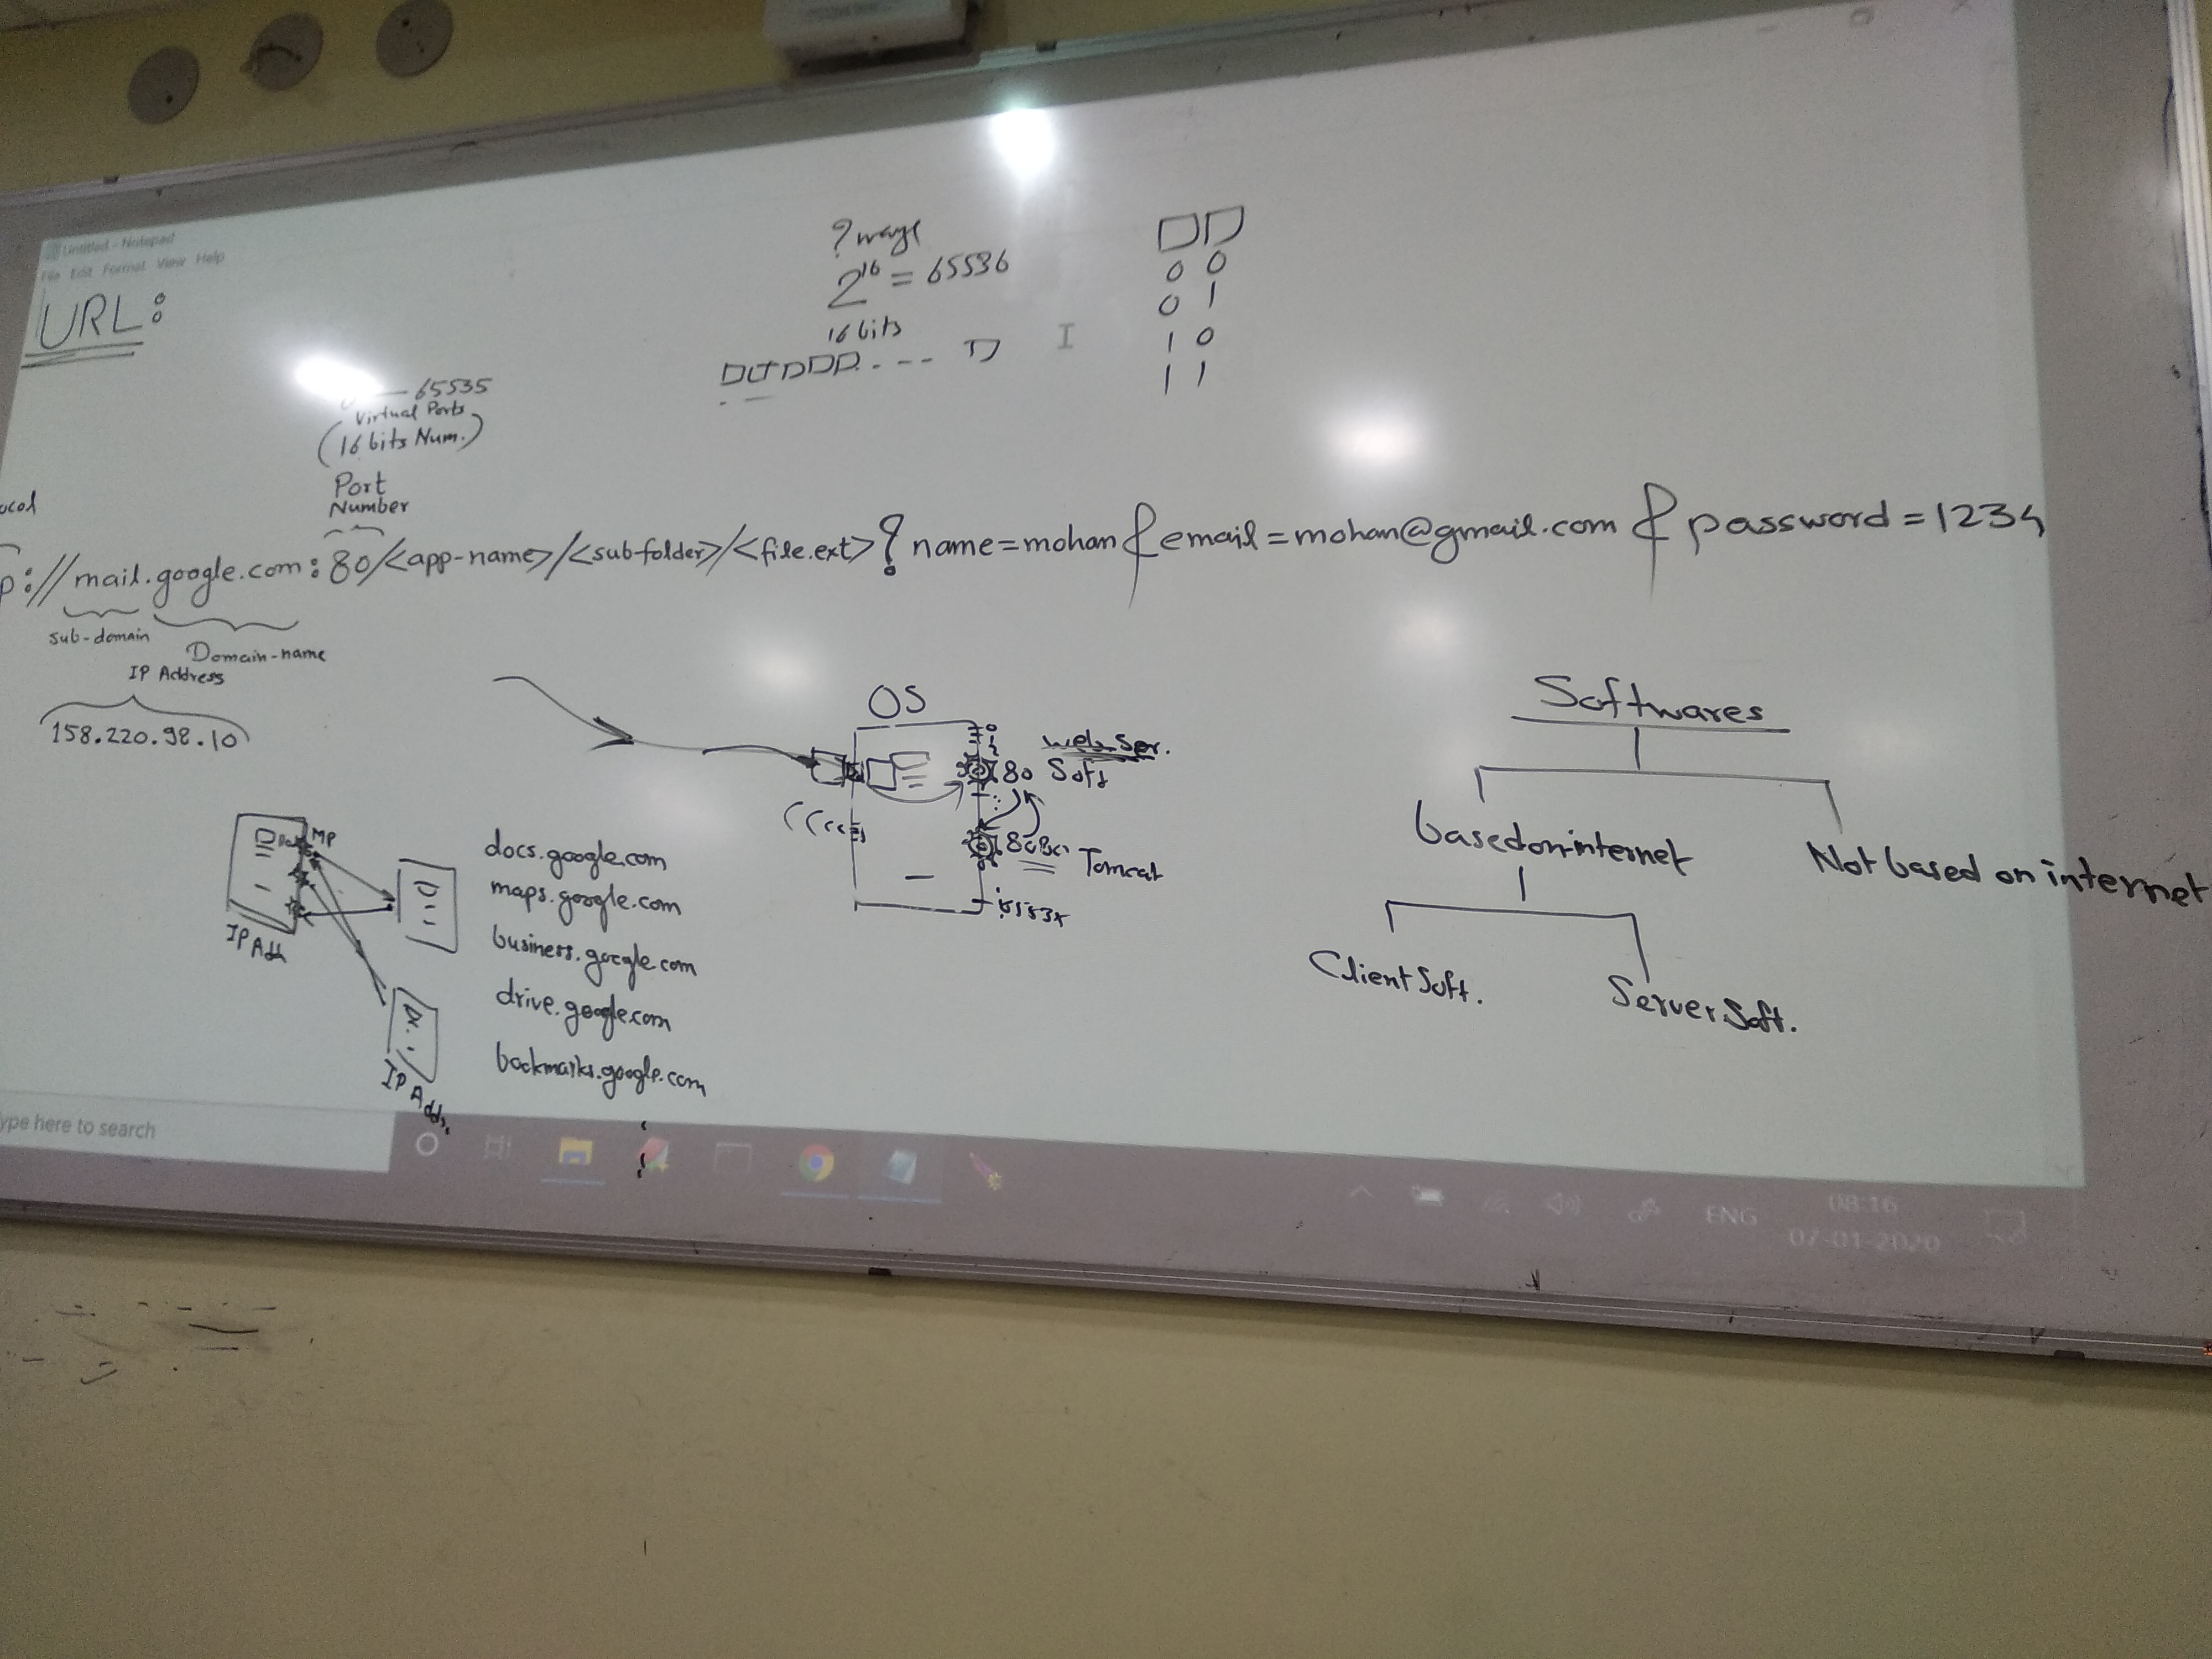 Untitled - Notepad
File Edit Format View Help
URL:
? ways
2^16 = 65536
16 bits
0 0
0 1
1 0
1 1
65535
Virtual Ports
(16 bits Num.)
Port
Number
ocol
p://mail.google.com:80/<app-name>/<sub-folder>/<file.ext>?name=mohan&email=mohan@gmail.com&password=1234
sub-domain
Domain-name
IP Address
158.220.98.10
OS
0
1
web.Ser.
80 Soft
8080
Tomcat
MP
IP Add
IP Addr.
docs.google.com
maps.google.com
business.google.com
drive.google.com
bookmarks.google.com
Softwares
based on internet
Not based on internet
Client Soft.
Server Soft.
ype here to search
ENG
08:16
07-01-2020